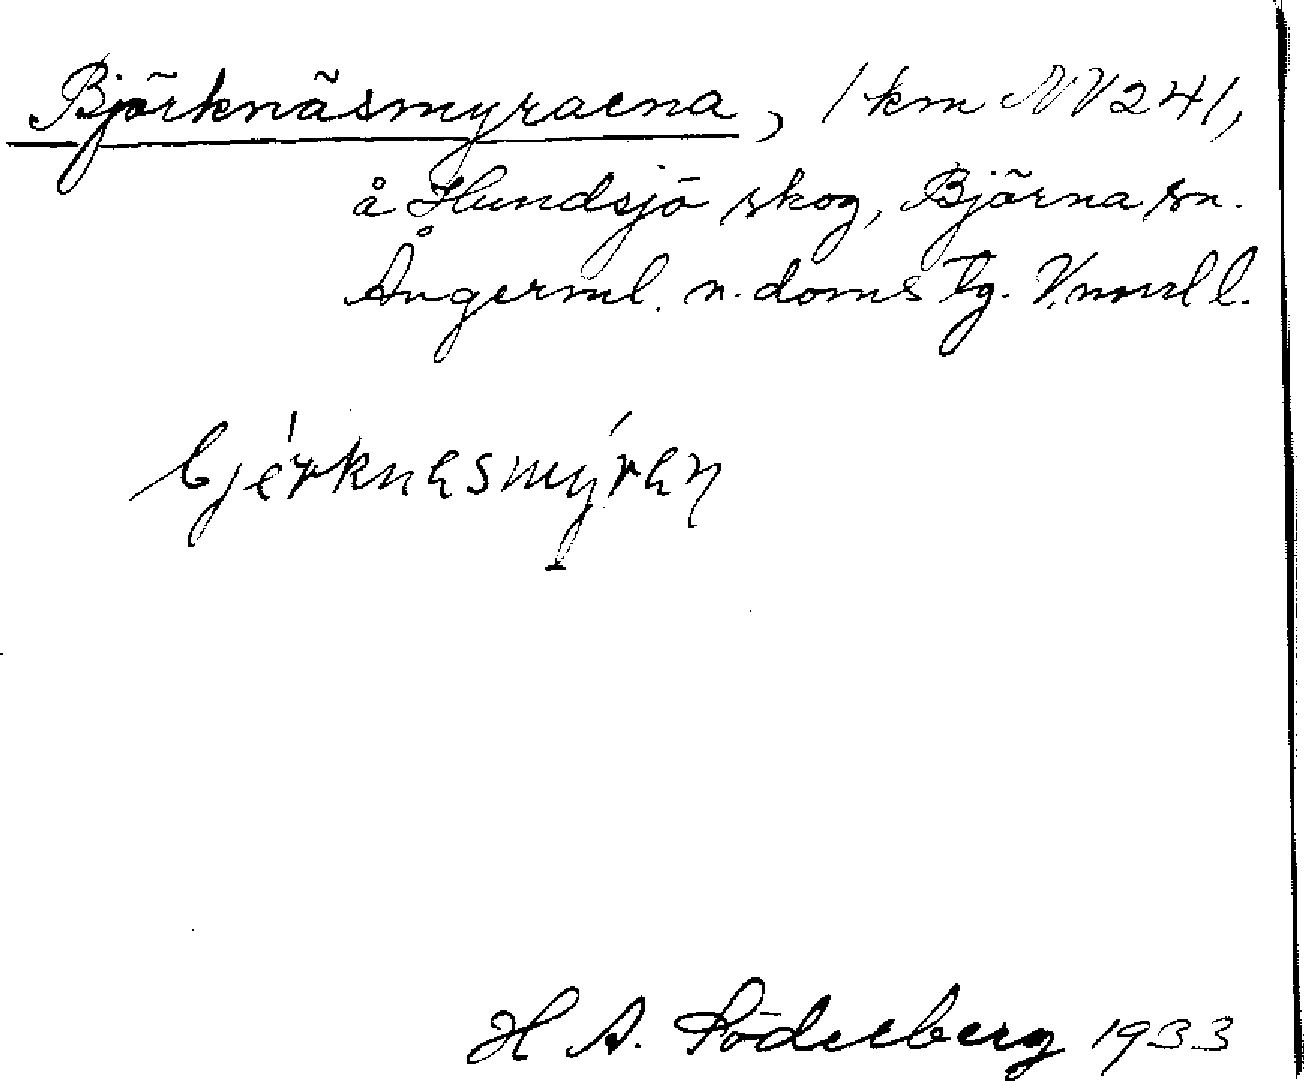 Björknäsmyraena, 1 km NV 241,
å Hundsjö skog, Björna sn.
Ångerml. n. doms tg. V.norrl l.
bjérknesmýren
H A. Söderberg 1933